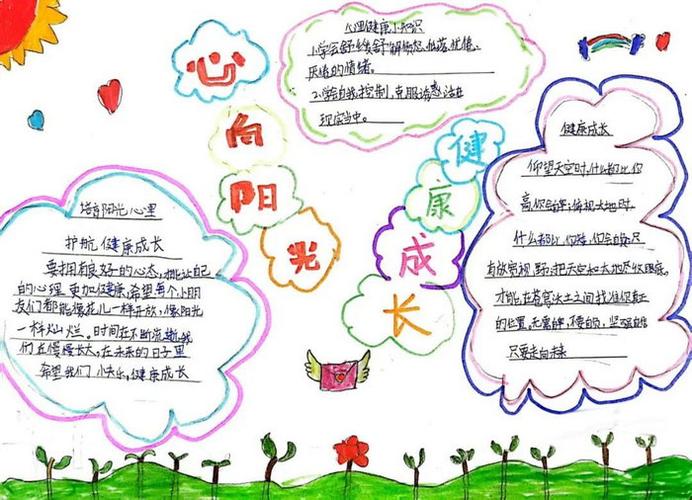 心向阳光
健康成长
心理健康小知识
1.学会舒缓舒解愤怒、低落、忧伤、
厌倦的情绪。
2.学自我控制,克服诱惑,活在
现实当中。
培育阳光心理
护航健康成长
要拥有良好的心态,能让自己
的心理更加健康,希望每个小朋
友们都能像花儿一样开放,像阳光
一样灿烂。时间在不断流逝,我
们在慢慢长大,在未来的日子里
希望我们快乐,健康成长
健康成长
仰望天空时,什么都比你
高,你会自卑;俯视大地时,
什么都比你矮,你会自负;只
有放宽视野,把天空和大地尽收眼底,
才能在苍穹沃土之间找准你真正
的位置。无需自卑,不要自负,坚强自信
只要走向未来